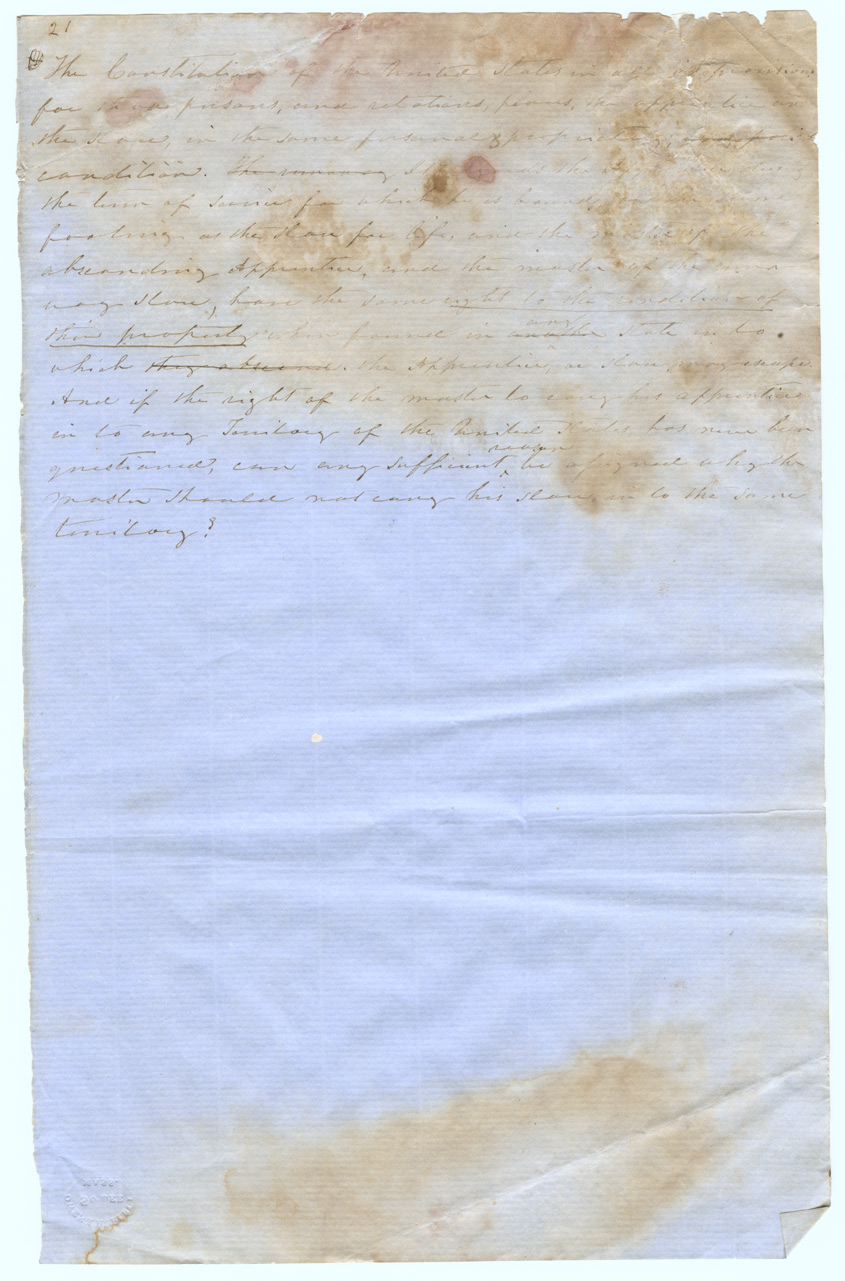 21
The Constitution of the United States in all its provisions
for persons, and relations, places, the apprentice and
the slave, in the same personal & proprietary,
condition. The runaway as the
the term of service for which he is bound, on the same
footing as the slave for life, and the master of the
absconding Apprentice, and the master of the run a
way slave, have the same right to the rendition of
their property when found in another any State in to
which they abscond. the Apprentice, or slave, may escape.
And if the right of the master to carry his apprentice
in to any Territory of the United States has never been
questioned, can any sufficient reason be assigned why the
master should not carry his slave in to the same
territory?